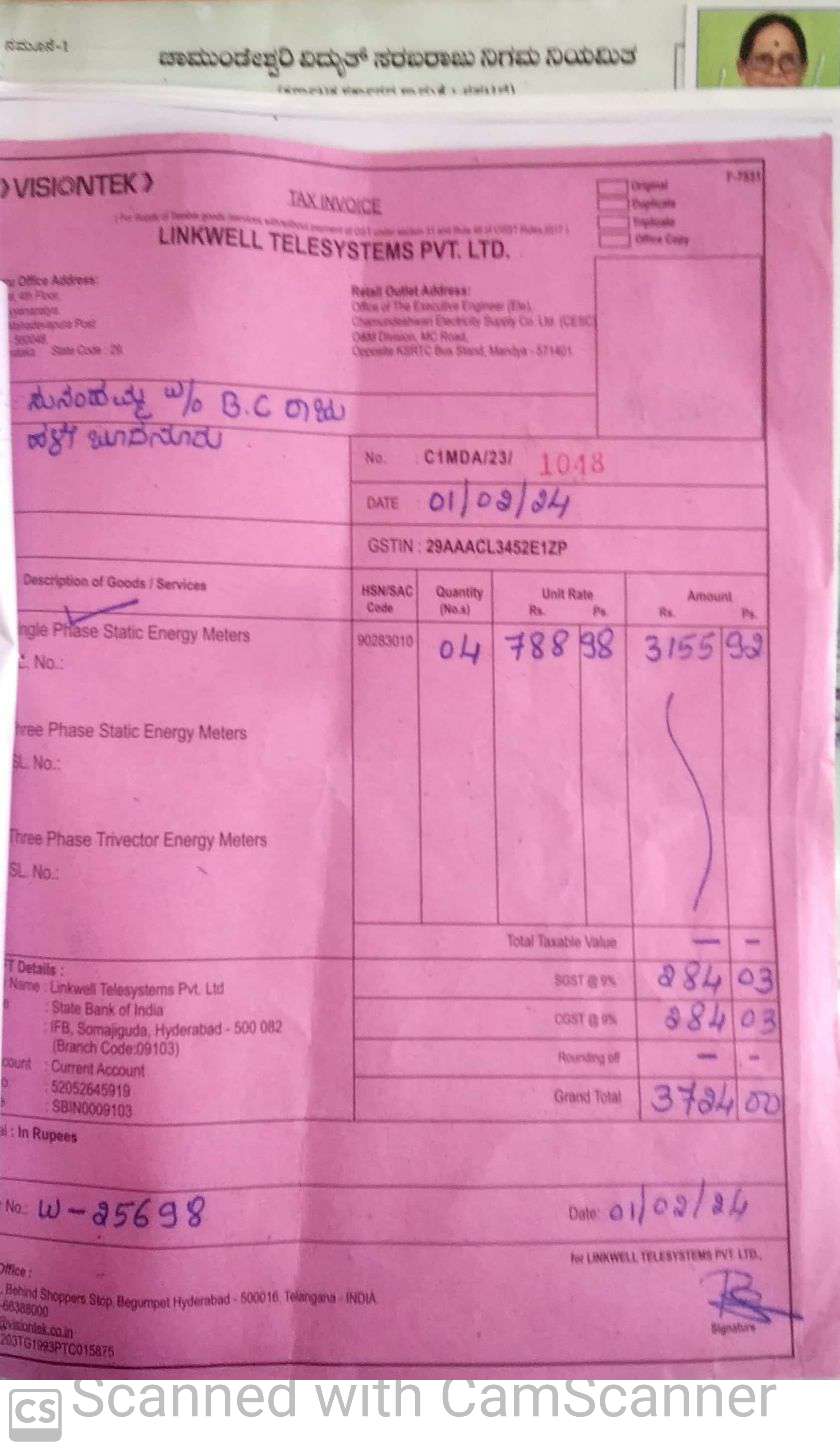 ನಮೂನೆ-1
ಚಾಮುಂಡೇಶ್ವರಿ ವಿದ್ಯುತ್ ಸರಬರಾಜು ನಿಗಮ ನಿಯಮಿತ
VISIONTEK
TAX INVOICE
F-7531
Original
Duplicate
Triplicate
Office Copy
LINKWELL TELESYSTEMS PVT. LTD.
Office Address:
4th Floor,
Post
State Code : 29
Retail Outlet Address:
Office of The Executive Engineer (Ele),
Chamundeshwari Electricity Supply Co. Ltd. (CESC)
O&M Division, MC Road,
Opposite KSRTC Bus Stand, Mandya - 571401
W/o B.C ರಾಜು
ಹಳೇ ಬೂದನೂರು
No. : C1MDA/23/ 1048
DATE : 01/02/24
GSTIN : 29AAACL3452E1ZP
Description of Goods / Services
HSN/SAC Code
Quantity (No.s)
Unit Rate Rs. Ps.
Amount Rs. Ps.
ngle Phase Static Energy Meters 90283010 04 788 98 3155 92
No.:
hree Phase Static Energy Meters
SL. No.:
Three Phase Trivector Energy Meters
SL. No.:
Total Taxable Value — –
T Details :
Name : Linkwell Telesystems Pvt. Ltd
: State Bank of India
: IFB, Somajiguda, Hyderabad - 500 082
(Branch Code:09103)
count : Current Account
: 52052645919
: SBIN0009103
SGST @ 9% 284 03
CGST @ 9% 284 03
Rounding off — -
Grand Total 3724 00
al : In Rupees
No.: W-25698
Date: 01/02/24
for LINKWELL TELESYSTEMS PVT. LTD.,
Office :
, Behind Shoppers Stop, Begumpet Hyderabad - 500016. Telangana - INDIA
-66388000
@visiontek.co.in
203TG1993PTC015875
Signature
CS Scanned with CamScanner